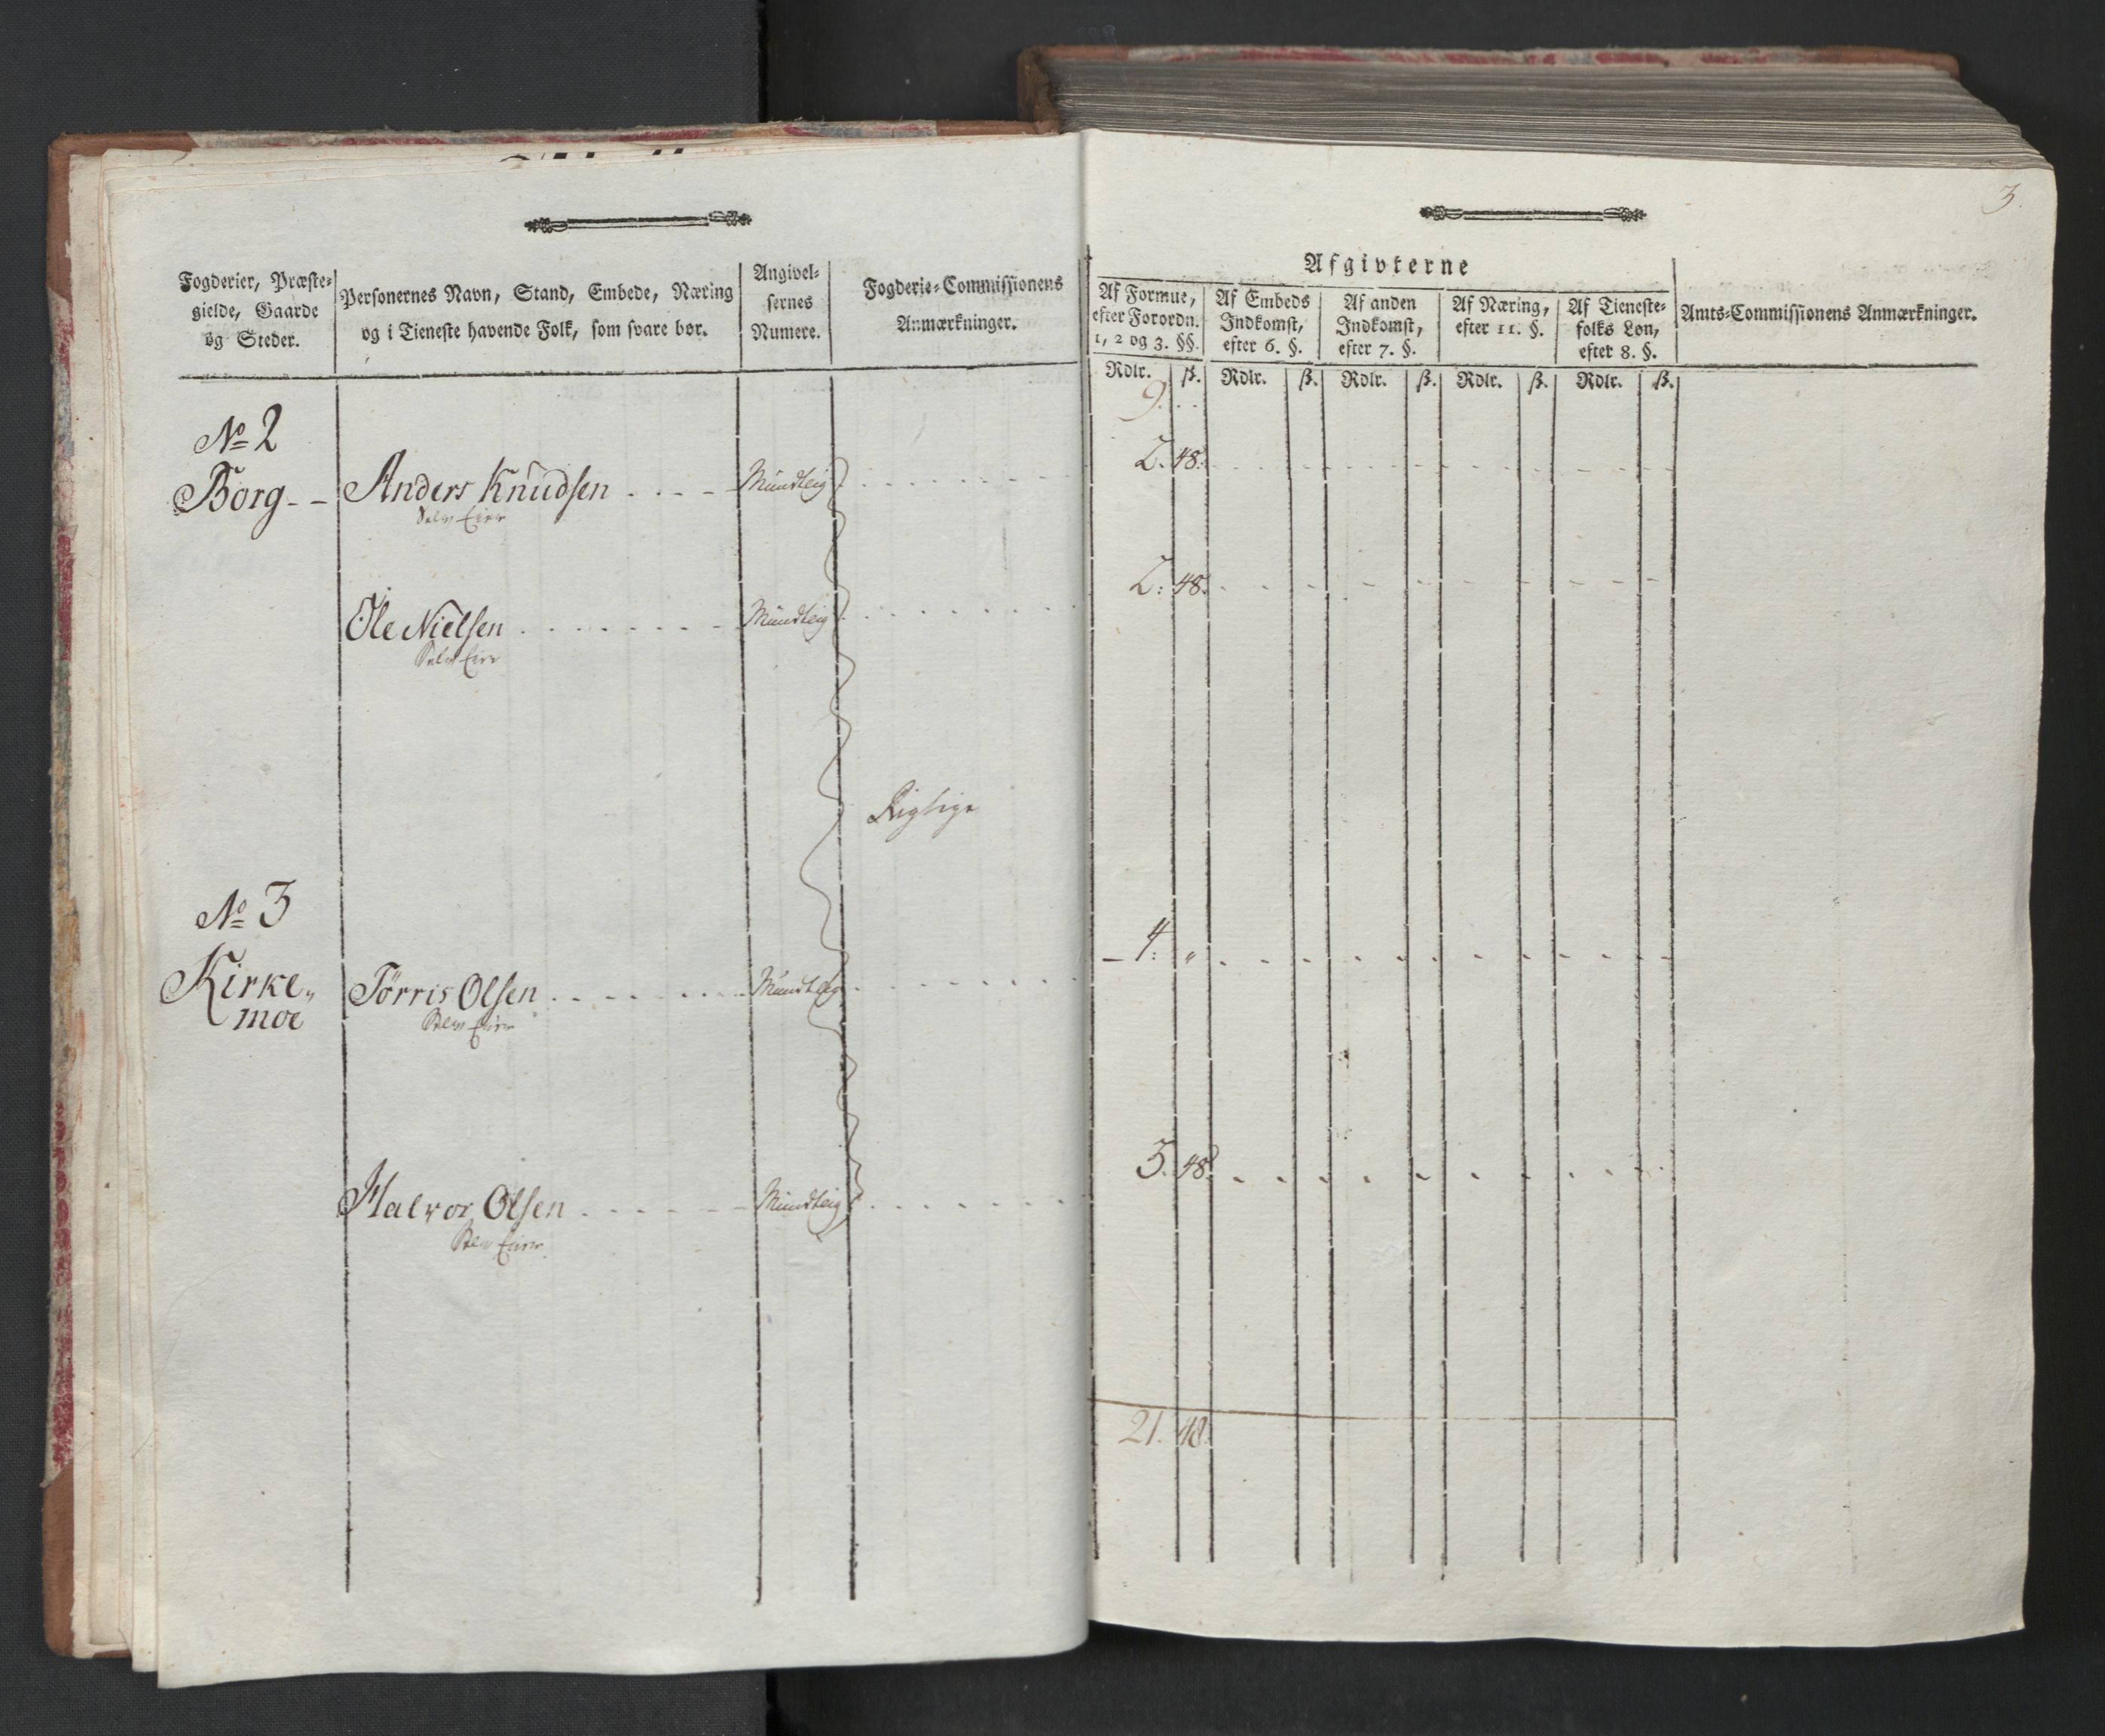 3.
Fogderier, Præste-
gielde, Gaarde
og Steder.
Personernes Navn, Stand, Embede, Næring
og i Tieneste havende Folk, som svare bør.
Angivel-
sernes
Numere.
Fogderie-Commissionens
Anmærkninger.
Afgivterne
Af Formue,
efter Forordn.
1, 2 og 3. §§.
Af Embeds
Indkomst,
efter 6. §.
Af anden
Indkomst,
efter 7. §.
Af Næring,
efter 11. §.
Af Tieneste-
folks Løn,
efter 8. §.
Amts-Commissionens Anmærkninger.
Rdlr. ß. Rdlr. ß. Rdlr. ß. Rdlr. ß. Rdlr. ß.
9.
No 2
Borg - - Anders Knudsen Mundtlig 2. 48.
Selv Eier
Ole Nielsen Mundtlig 2: 48.
Selv Eier
Rigtige
No 3
Kirke- Tørris Olsen Mundtlig 4: "
moe Selv Eier
Halvor Olsen Mundtlig 3. 48.
Selv Eier
21. 48.